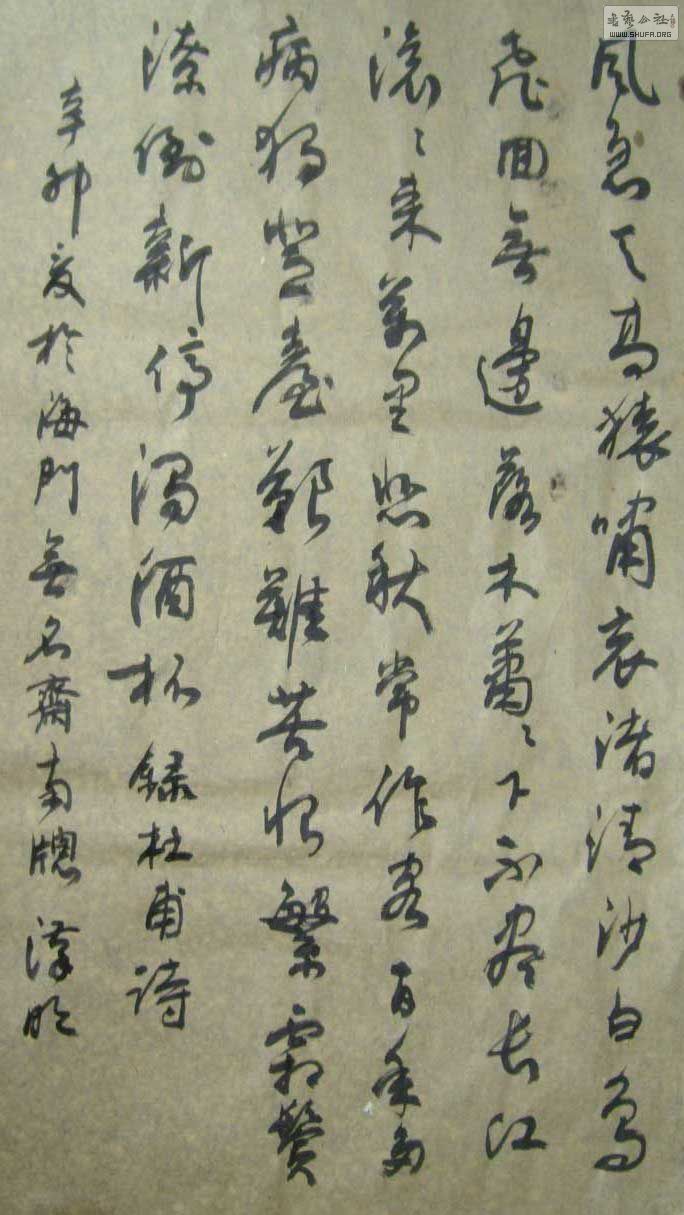 風急天高猿嘯哀渚清沙白鳥
飛回無邊落木蕭〻下不盡長江
滾〻来萬里悲秋常作客百年多
病獨登臺艱難苦恨繁霜鬢
潦倒新停濁酒杯錄杜甫詩
辛卯夏於海門無名齋南牕
書藝公社
WWW.SHUFA.ORG